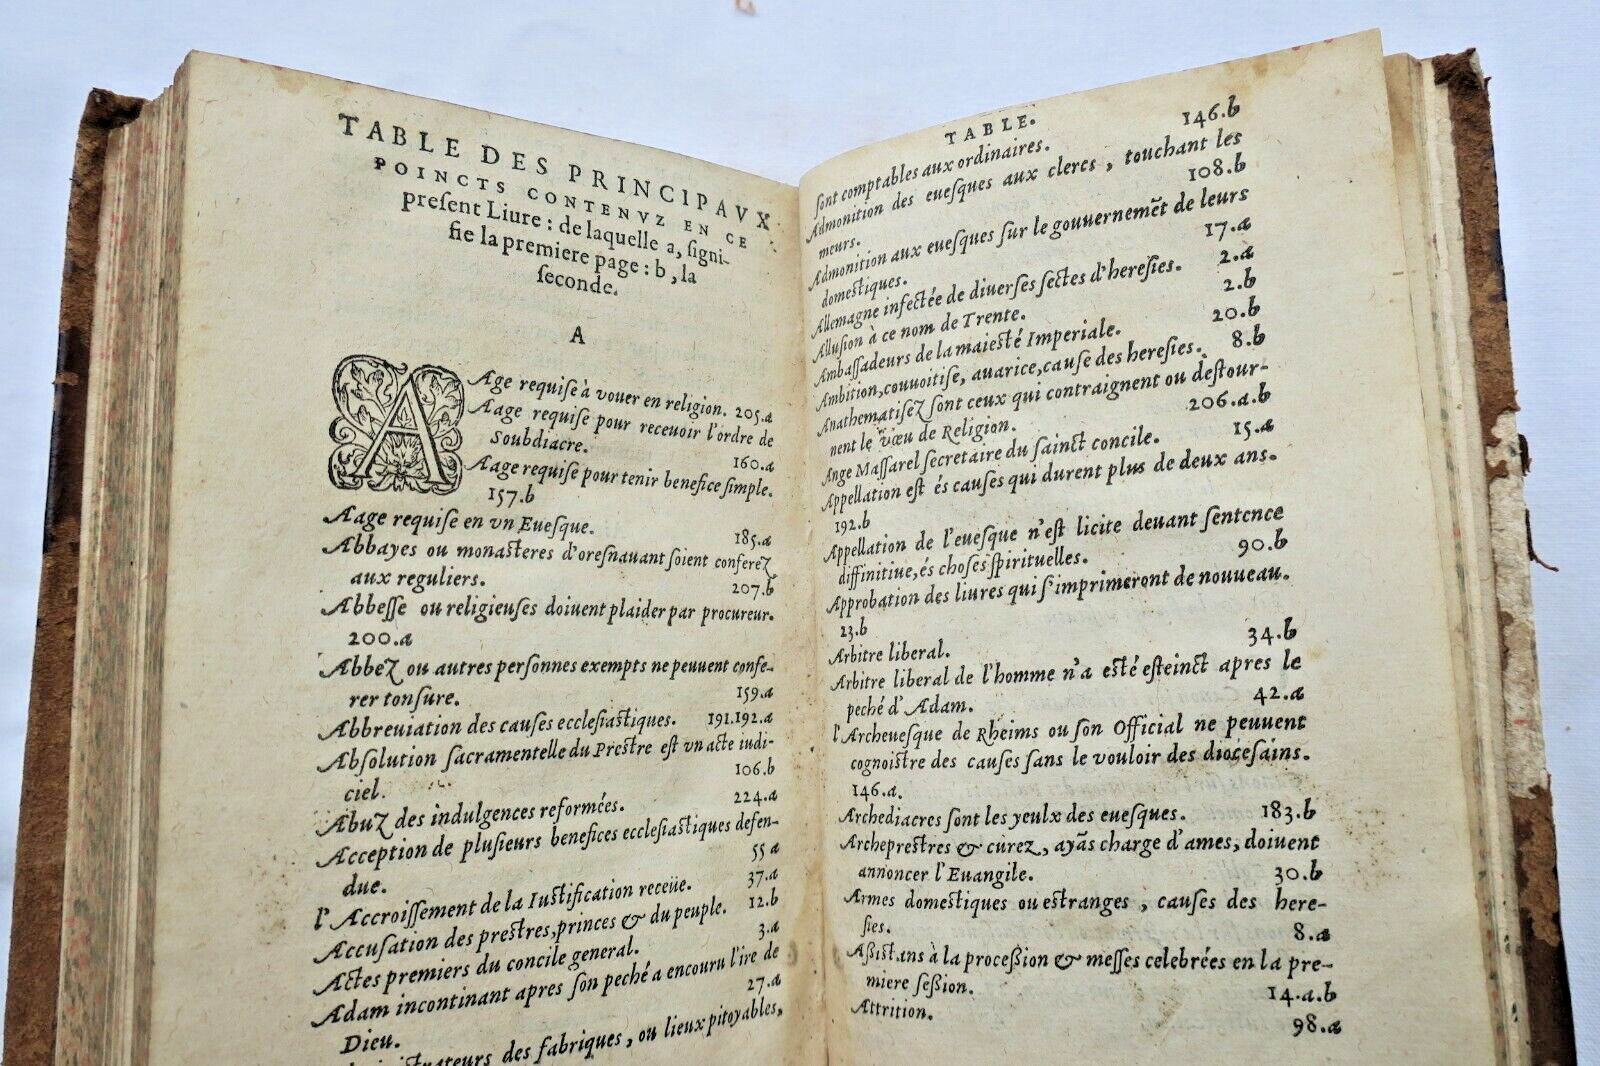 TABLE DES PRINCIPAVX
POINCTS CONTENVZ EN CE
preſent Liure : de laquelle a, ſigni-
fie la premiere page : b, la
ſeconde.
A
Age requiſe à vouer en religion. 205.a
Aage requiſe pour receuoir l'ordre de
Soubdiacre. 160.a
Aage requiſe pour tenir benefice ſimple.
157.b
Aage requiſe en vn Eueſque. 185.a
Abbayes ou monaſteres d'oreſnauant ſoient conferez
aux reguliers. 207.b
Abbeſſe ou religieuſes doiuent plaider par procureur.
200.a
Abbez ou autres perſonnes exempts ne peuuent confe-
rer tonſure. 159.a
Abbreuiation des cauſes eccleſiaſtiques. 191.192.a
Abſolution ſacramentelle du Preſtre eſt vn acte iudi-
ciel. 106.b
Abuz des indulgences reformées. 224.a
Acception de pluſieurs benefices eccleſiaſtiques defen-
due. 55 a
l'Accroiſſement de la Iuſtification receüe. 37.a
Accuſation des preſtres, princes & du peuple. 12.b
Actes premiers du concile general. 3.a
Adam incontinant apres ſon peché a encouru l'ire de
Dieu. 27.a
des fabriques, ou lieux pitoyables,
TABLE.
ſont comptables aux ordinaires. 146.b
Admonition des eueſques aux clercs, touchant les
meurs. 108.b
Admonition aux eueſques ſur le gouuernemẽt de leurs
domeſtiques. 17.a
Allemagne infectée de diuerſes ſectes d'hereſies. 2.a
Alluſion à ce nom de Trente. 2.b
Ambaſſadeurs de la maieſté Imperiale. 20.b
Ambition, conuoitiſe, auarice, cauſe des hereſies. 8.b
Anathematiſez ſont ceux qui contraignent ou deſtour-
nent le vœu de Religion. 206.a.b
Ange Maſſarel ſecretaire du ſainct concile. 15.a
Appellation eſt és cauſes qui durent plus de deux ans.
192.b
Appellation de l'eueſque n'eſt licite deuant ſentence
diffinitiue, és choſes ſpirituelles. 90.b
Approbation des liures qui s'imprimeront de nouueau.
23.b
Arbitre liberal. 34.b
Arbitre liberal de l'homme n'a eſté eſteinct apres le
peché d'Adam. 42.a
l'Archeueſque de Rheims ou ſon Official ne peuuent
cognoiſtre des cauſes ſans le vouloir des dioceſains.
146.a.
Archediacres ſont les yeulx des eueſques. 183.b
Archepreſtres & curez, ayãs charge d'ames, doiuent
annoncer l'Euangile. 30.b
Armes domeſtiques ou eſtranges, cauſes des here-
ſies. 8.a
Aſsiſtans à la proceſsion & meſſes celebrées en la pre-
miere ſeſsion. 14.a.b
Attrition. 98.a